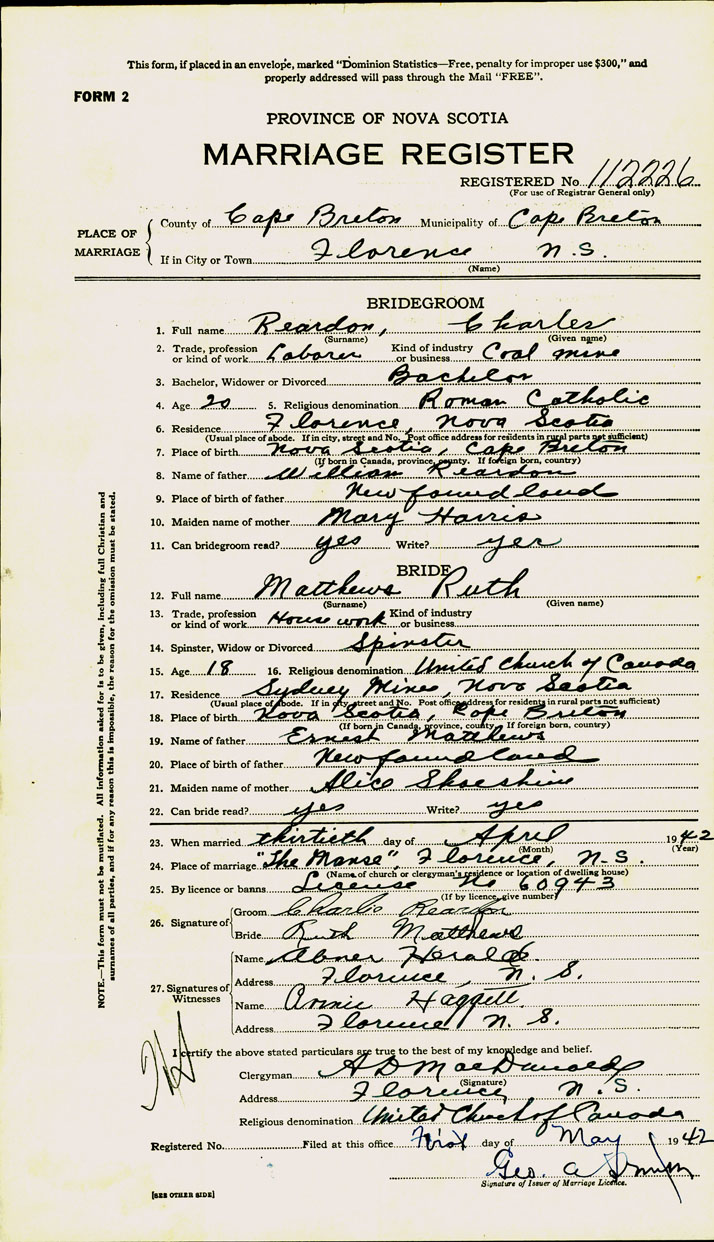 This form, if placed in an envelope, marked "Dominion Statistics—Free, penalty for improper use $300," and
properly addressed will pass through the Mail "FREE".
FORM 2
PROVINCE OF NOVA SCOTIA
MARRIAGE REGISTER
REGISTERED No. 112226
(For use of Registrar General only)
PLACE OF MARRIAGE
County of Cape Breton Municipality of Cape Breton
If in City or Town Florence N.S.
(Name)
BRIDEGROOM
1. Full name Reardon, Charles
(Surname) (Given name)
2. Trade, profession or kind of work Laborer Kind of industry or business Coal mine
3. Bachelor, Widower or Divorced Bachelor
4. Age 20 5. Religious denomination Roman Catholic
6. Residence Florence, Nova Scotia
(Usual place of abode. If in city, street and No. Post office address for residents in rural parts not sufficient)
7. Place of birth Nova Scotia, Cape Breton
(If born in Canada, province, county. If foreign born, country)
8. Name of father William Reardon
9. Place of birth of father Newfoundland
10. Maiden name of mother Mary Harris
11. Can bridegroom read? yes Write? yes
BRIDE
12. Full name Matthews Ruth
(Surname) (Given name)
13. Trade, profession or kind of work House work Kind of industry or business
14. Spinster, Widow or Divorced Spinster
15. Age 18 16. Religious denomination United Church of Canada
17. Residence Sydney Mines, Nova Scotia
(Usual place of abode. If in city, street and No. Post office address for residents in rural parts not sufficient)
18. Place of birth Nova Scotia, Cape Breton
(If born in Canada, province, county. If foreign born, country)
19. Name of father Ernest Matthews
20. Place of birth of father Newfoundland
21. Maiden name of mother Alice
22. Can bride read? yes Write? yes
23. When married thirtieth day of April 1942
(Month) (Year)
24. Place of marriage "The Manse", Florence, N.S.
(Name of church or clergyman's residence or location of dwelling house)
25. By licence or banns License No 60943
(If by licence, give number)
26. Signature of
Groom Charles Reardon
Bride Ruth Matthews
27. Signatures of Witnesses
Name Abner
Address Florence, N. S.
Name Annie Haggett
Address Florence N. S.
I certify the above stated particulars are true to the best of my knowledge and belief.
Clergyman A D MacDonald
(Signature)
Address Florence, N. S.
Religious denomination United Church of Canada
Registered No. Filed at this office First day of May 1942
Geo. A
Signature of Issuer of Marriage Licence.
[SEE OTHER SIDE]
NOTE.—This form must not be mutilated. All information asked for is to be given, including full Christian and
surnames of all parties, and if for any reason this is impossible, the reason for the omission must be stated.